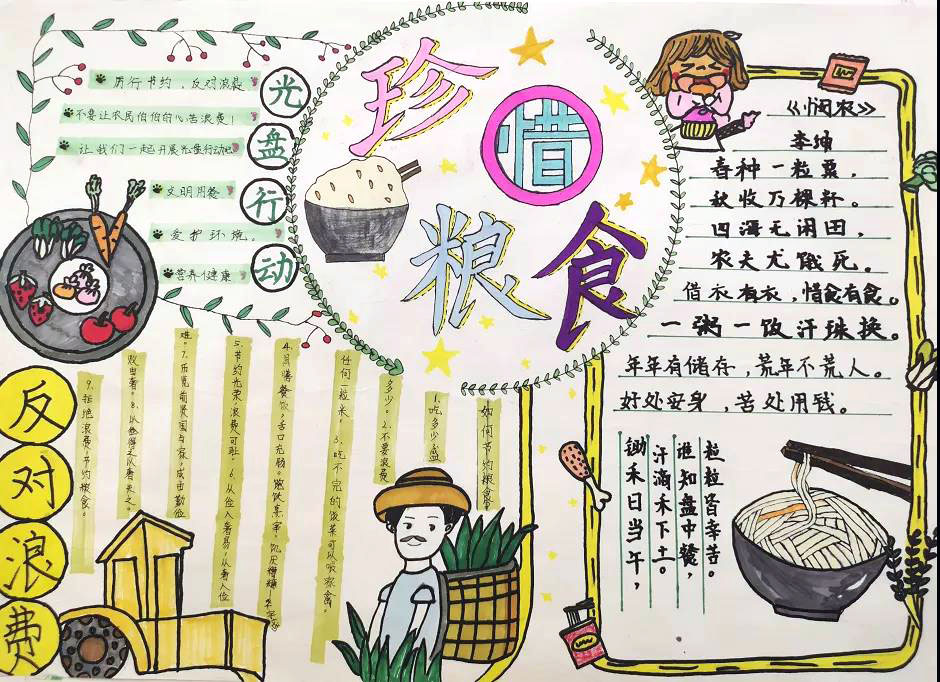 珍惜粮食
光盘行动
厉行节约，反对浪费
不要让农民伯伯的心苦浪费！
让我们一起开展光盘行动吧
文明用餐
爱护环境。
营养健康
《悯农》
李坤
春种一粒粟，
秋收乃棵籽。
四海无闲田，
农夫尤饿死。
借衣有衣，惜食有食。
一粥一饭汗珠换。
年年有储存，荒年不荒人。
好处安身，苦处用钱。
粒粒皆辛苦。
谁知盘中餐，
汗滴禾下土。
锄禾日当午，
如何节约粮食
1.吃多少盛
多少。2.不要浪费
任何一粒米。3.吃不完的饭菜可以喂家禽。
5.节约光荣，浪费可耻。6.从俭入奢易，从奢入俭
难。7.历览前贤国与家，成由勤俭
败由奢。8.以俭得之以奢失之。
9.拒绝浪费，节约粮食。
反对浪费